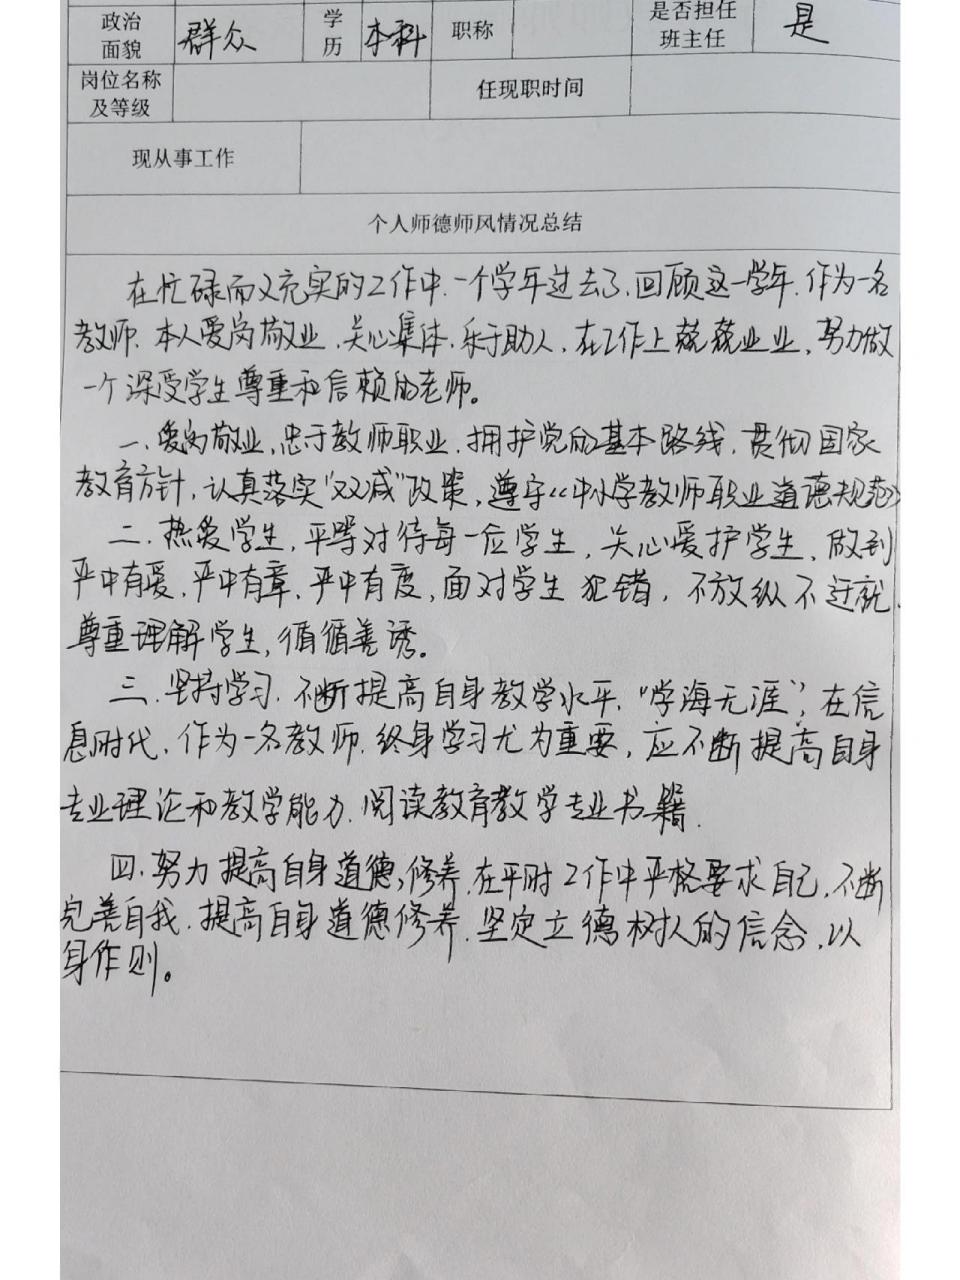 政治面貌 群众 学历 本科 职称 是否担任班主任 是
岗位名称及等级 任现职时间
现从事工作
个人师德师风情况总结
在忙碌而又充实的工作中,一个学年过去了,回顾这一学年,作为一名
教师,本人爱岗敬业,关心集体,乐于助人,在工作上兢兢业业,努力做
一个深受学生尊重和信赖的老师。
一、爱岗敬业,忠于教师职业,拥护党的基本路线,贯彻国家
教育方针,认真落实“双减”政策,遵守《中小学教师职业道德规范》
二、热爱学生,平等对待每一位学生,关心爱护学生,做到
严中有爱,严中有章,严中有度,面对学生犯错,不放纵不迁就,
尊重理解学生,循循善诱。
三、坚持学习,不断提高自身教学水平,“学海无涯”,在信
息时代,作为一名教师,终身学习尤为重要,应不断提高自身
专业理论和教学能力,阅读教育教学专业书籍.
四、努力提高自身道德,修养,在平时工作中严格要求自己,不断
完善自我,提高自身道德修养,坚定立德树人的信念,以
身作则。